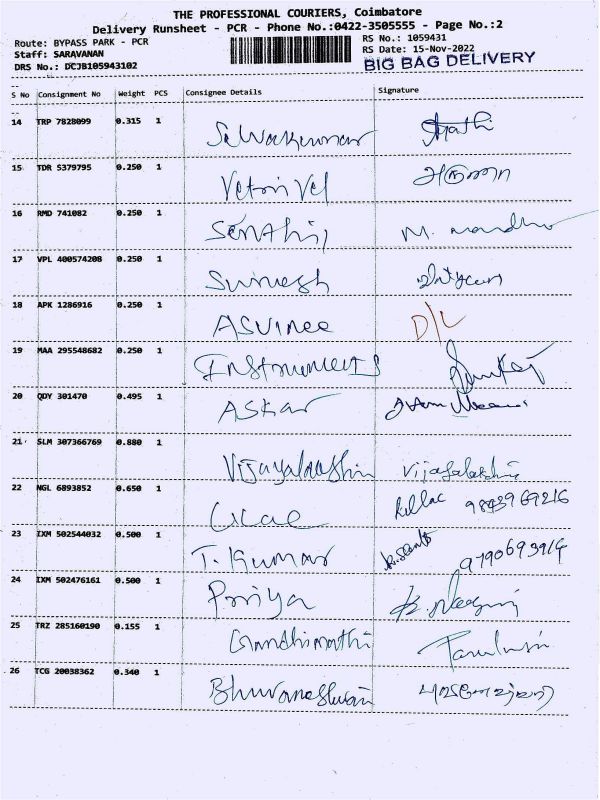 THE PROFESSIONAL COURIERS, Coimbatore
Delivery Runsheet - PCR - Phone No.:0422-3505555 - Page No.:2
Route: BYPASS PARK - PCR
RS No.: 1059431
Staff: SARAVANAN
RS Date: 15-Nov-2022
DRS No.: DCJB105943102
BIG BAG DELIVERY
S No Consignment No Weight PCS Consignee Details Signature
14 TRP 7828099 0.315 1 Selvakumar
15 TDR 5379795 0.250 1 Vetri Vel
16 RMD 741082 0.250 1 Senthil M.
17 VPL 400574208 0.250 1
18 APK 1286916 0.250 1 Asvinee D/L
19 MAA 295548682 0.250 1 Instruments
20 QDY 301470 0.495 1 Askar
21 SLM 307366769 0.880 1 Vijayalakshmi Vijayalakshmi
22 NGL 6893852 0.650 1
23 IXM 502544032 0.500 1 T. Kumar 9790693914
24 IXM 502476161 0.500 1 Priya
25 TRZ 285160190 0.155 1 Gandhimathi
26 TCG 20038362 0.340 1 Bhuvaneshwari